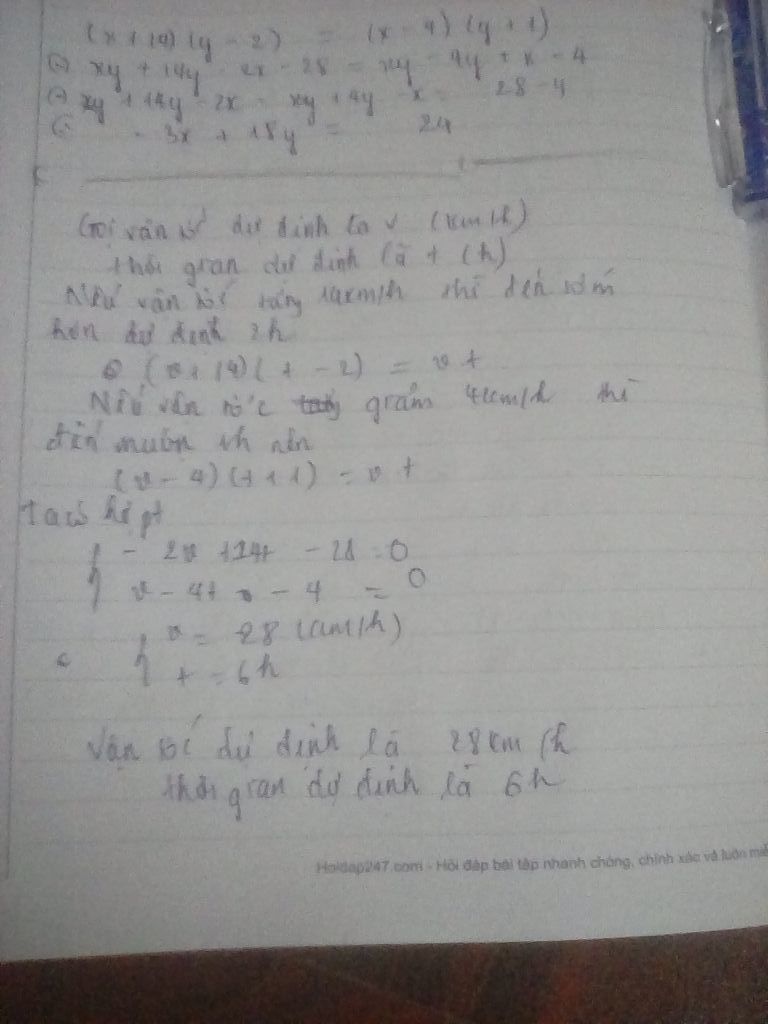 (x + 14) (y - 2) = (x - 4) (y + 1)
⇔ xy + 14y - 2x - 28 = xy - 4y + x - 4
⇔ xy + 14y - 2x - xy + 4y - x = 28 - 4
⇔ - 3x + 18y = 24
Gọi vận tốc dự định là v (km/h)
thời gian dự định là t (h)
Nếu vận tốc tăng 14km/h thì đến sớm
hơn dự định 2h
(v + 14) (t - 2) = vt
Nếu vận tốc giảm 4km/h thì
đến muộn 1h nên
(v - 4) (t + 1) = vt
Ta có hệ pt
- 2v + 14t - 28 = 0
v - 4t - 4 = 0
v = 28 (km/h)
t = 6h
Vận tốc dự định là 28km/h
thời gian dự định là 6h
Hoidap247.com - Hỏi đáp bài tập nhanh chóng, chính xác và luôn miễ